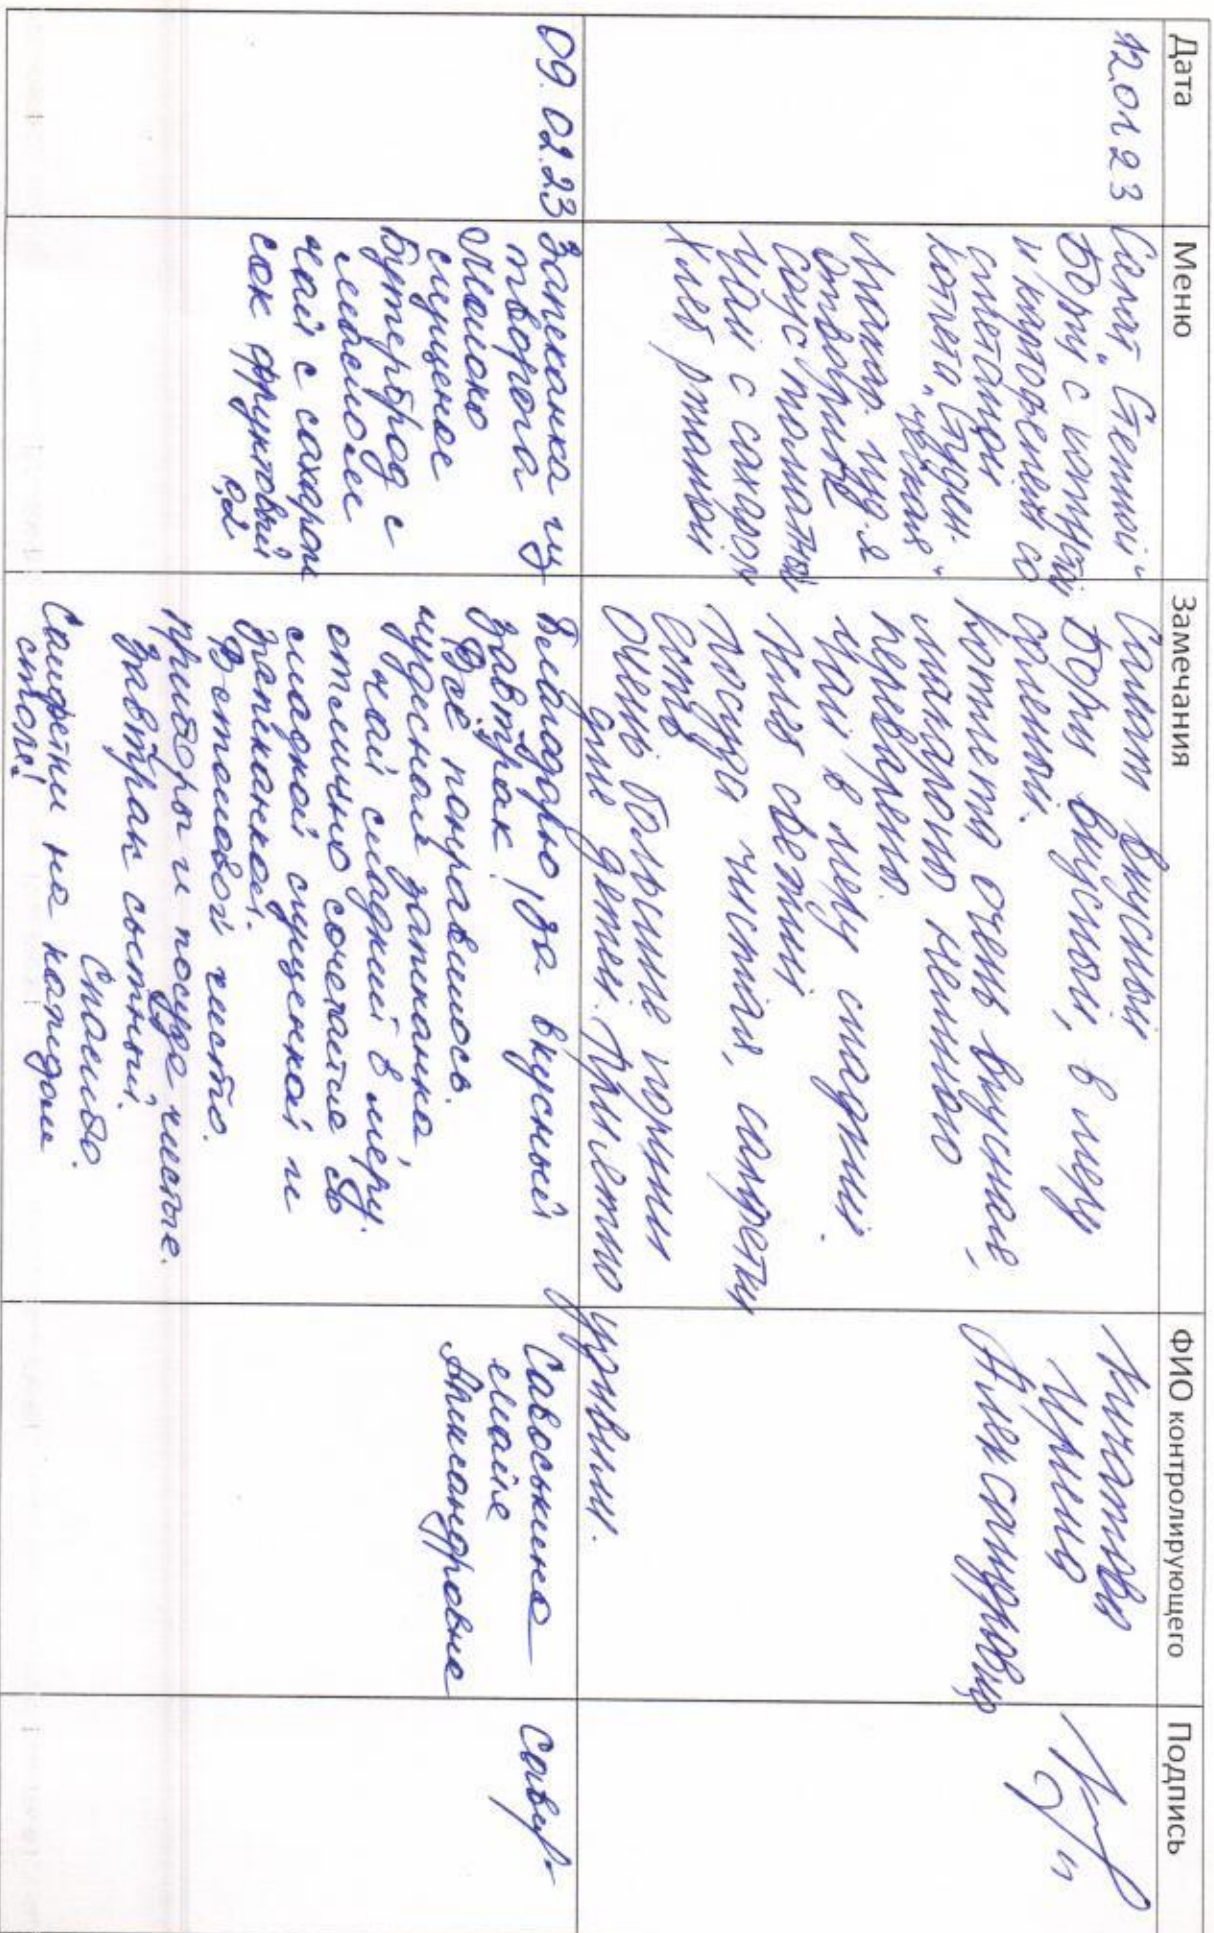 Дата Меню Замечания ФИО контролирующего Подпись
12.01.23
Салат "Степной"
Борщ с капустой
и картофелем со
сметаной
Котлета "Студен-
ческая"
Макар. изд-я
отварные
Соус томатный
Чай с сахаром
Хлеб ржаной
Салат вкусный
Борщ вкусный, в меру
соленый.
Котлета очень вкусная,
макароны немного
переварены.
Чай в меру сладкий.
Хлеб свежий
Посуда чистая, салфетки
есть
Очень большие порции
для детей. Приятно удивили.
Ирина
Александровна
09.02.23
Запеканка из
творога
Молоко
сгущеное
Бутерброд с
маслом
чай с сахаром
сок фруктовый
0,2
Благодарю за вкусный
завтрак!
Всё понравилось.
чудесная запеканка,
чай сладкий в меру.
отлично сочетание со
сладкой сгущенкой и
запеканкой.
В столовой чисто.
приборы и посуда чистые.
Завтрак сытный.
Спасибо.
Салфетки на каждом
столе!
Савоськина
Майя
Александровна